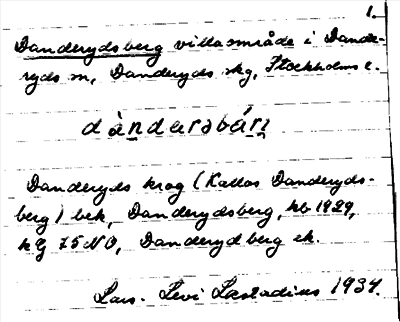 1.
Danderydsberg villaområde i Dande-
ryds sn, Danderyds skg, Stockholms l.
dàndərsbárj
Danderyds krog (Kallas Danderyds-
berg) bek, Danderydsberg, kb 1929,
kg 75 NO, Danderyd berg ek.
Lars-Levi Læstadius 1934.